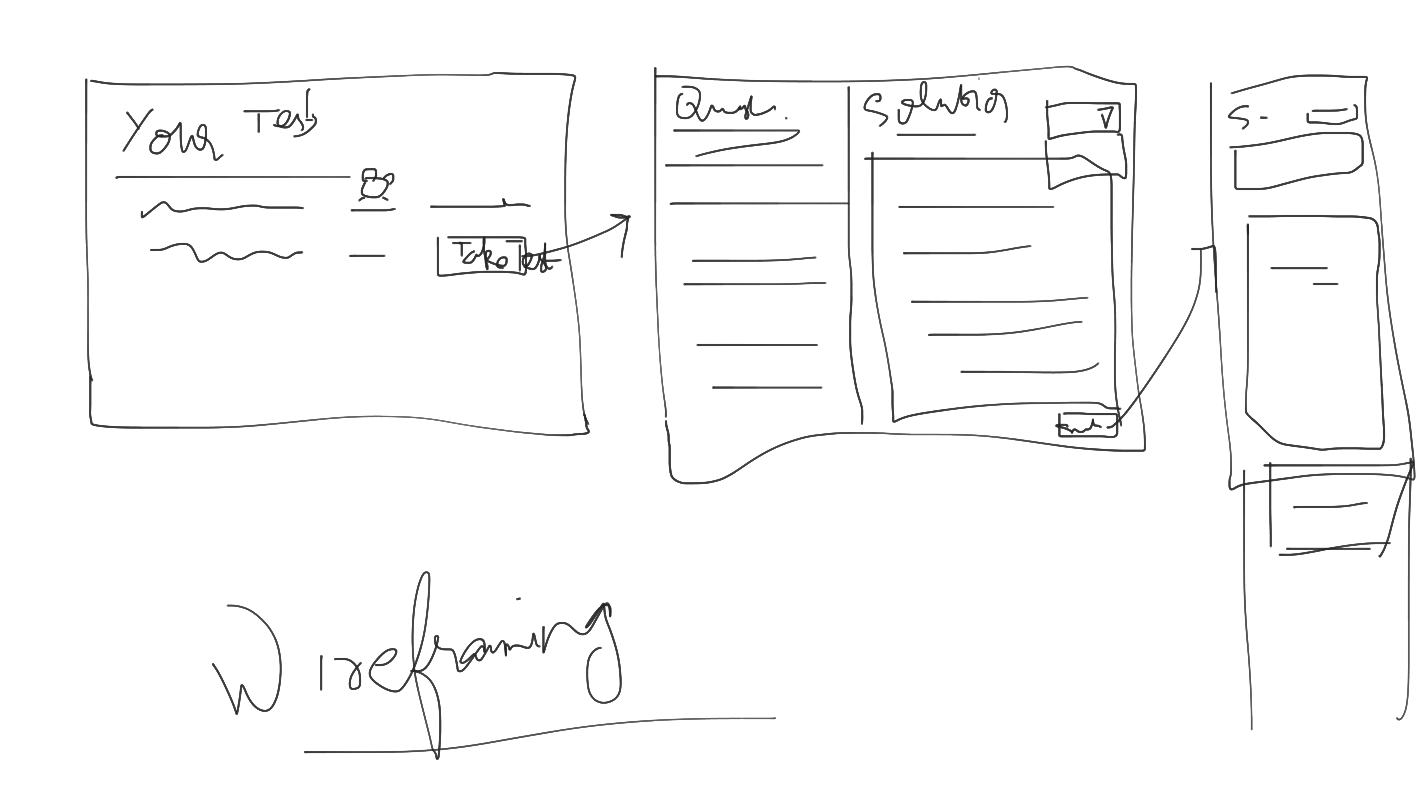 Your Test
Take Test
Ques.
Solution
S-
Wireframing